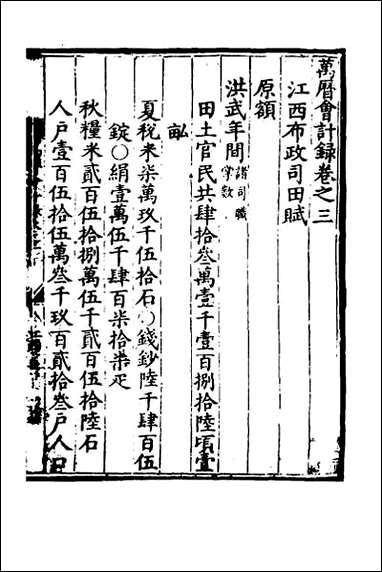 萬曆會計録卷之三
江西布政司田賦
原額
洪武年間諸司職掌數
田土官民共肆拾叁萬壹千壹百捌拾陸頃壹
畝
夏税米柒萬玖千伍拾石○錢鈔陸千肆百伍
錠○絹壹萬伍千肆百柒拾柒疋
秋糧米貳百伍拾捌萬伍千貳百伍拾陸石
人户壹百伍拾伍萬叁千玖百貳拾叁户人口